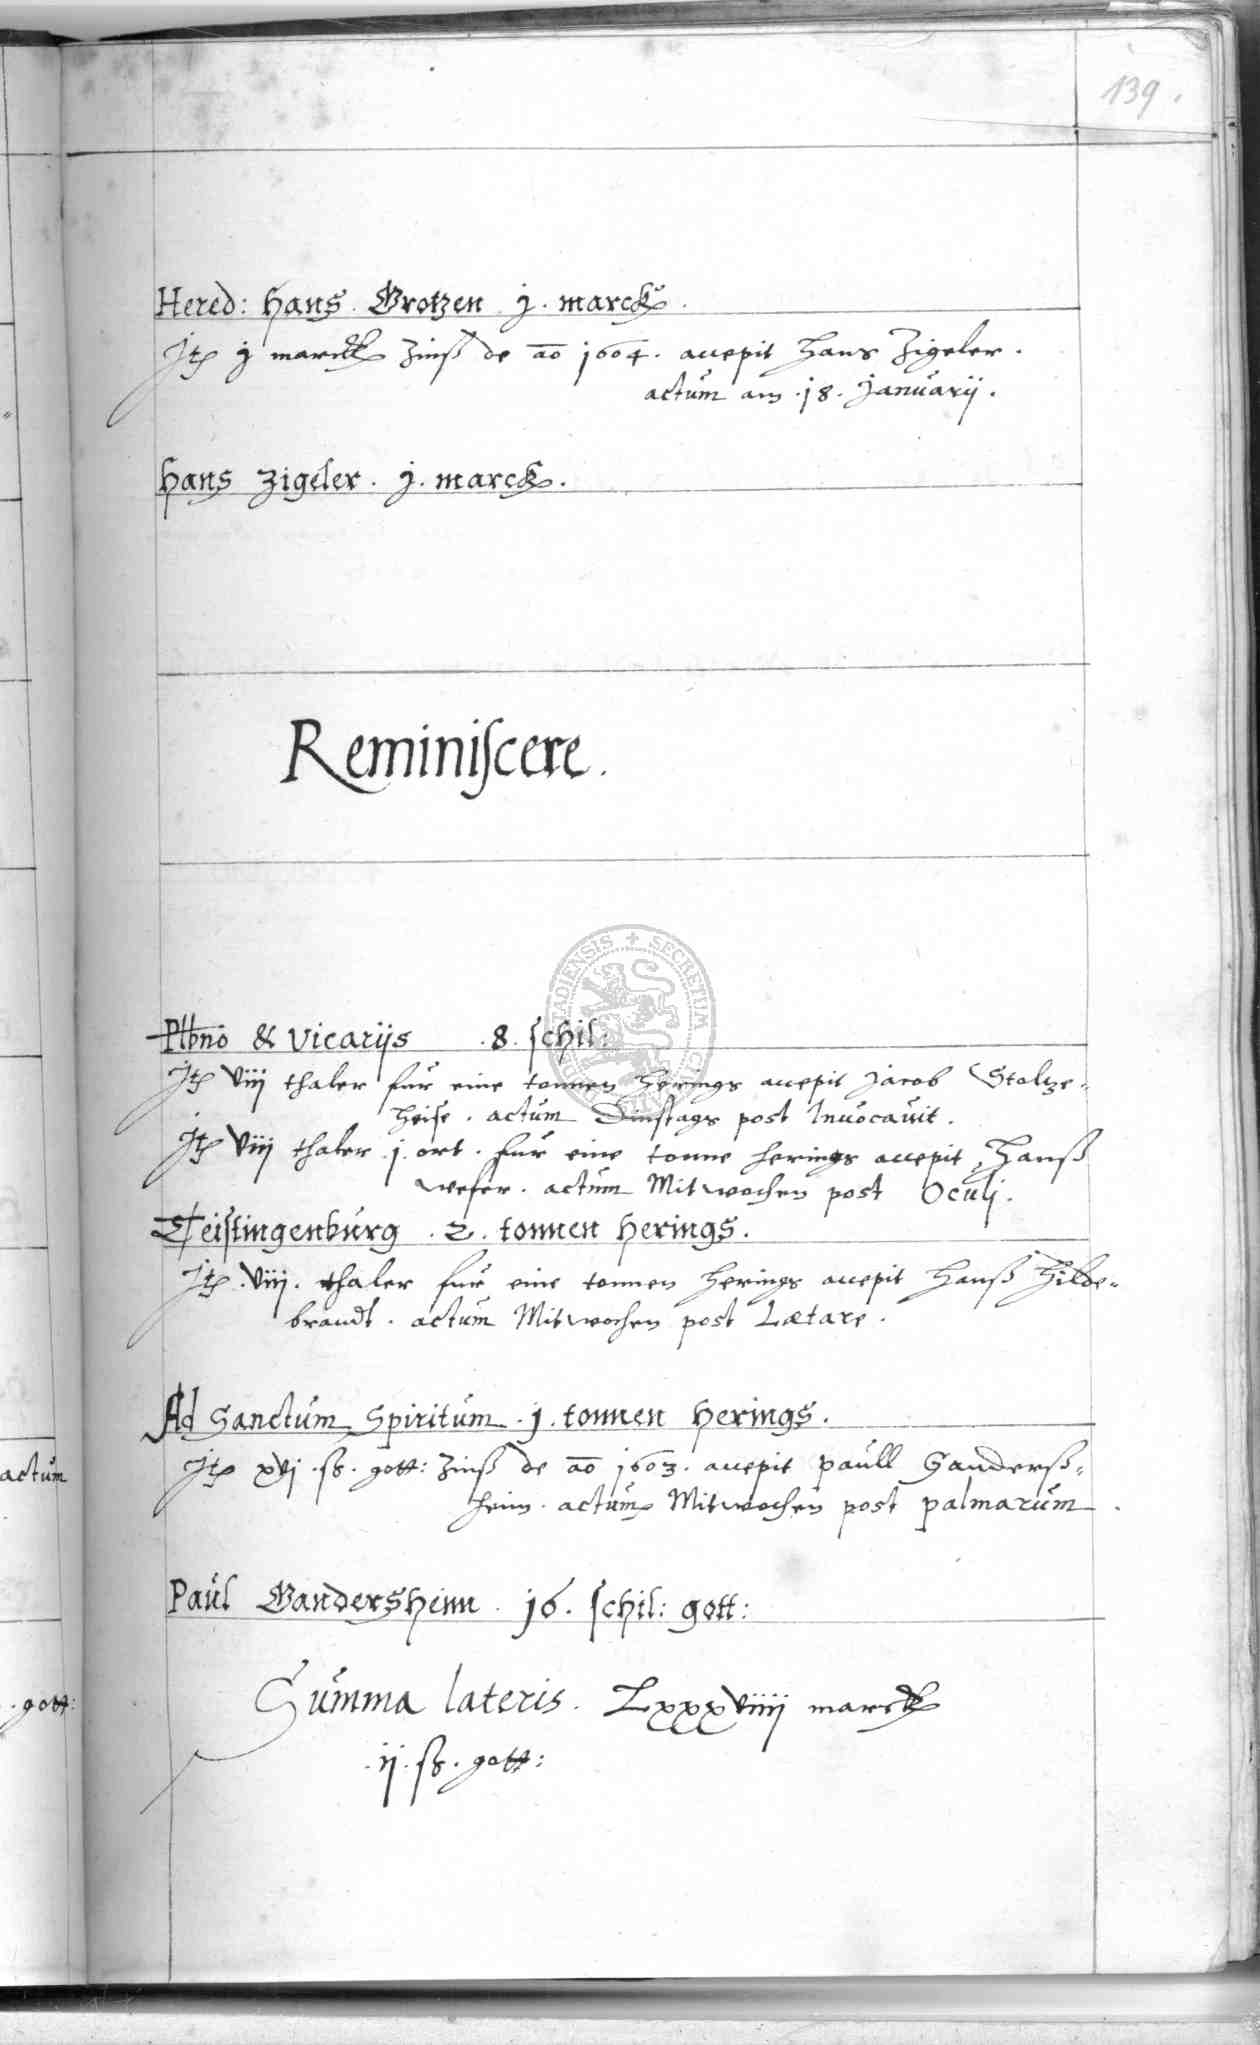 139.
Hered: Hans Grotzen j. marck.
Jtem j marck Zinß de ao 1604. accepit Hans Zigeler.
actum am 18. Januarij.
Hans Zigeler. j. marck.
Reminiscere.
Plbno & vicarijs .8. schil:
Jtem viij thaler fur eine tonnen herings accepit Jacob Stoltze-
heise. actum Dinstags post Invocavit.
Jtem viij thaler j. ort. fur eine tonne herings accepit Hanß
weser. actum Mitwochen post Oculj.
Teistingenburg .2. tonnen herings.
Jtem viij. thaler fur eine tonnen herings accepit Hanß Hilde-
brandt. actum Mitwochen post Lætare.
Ad Sanctum Spiritum j. tonnen herings.
Jtem xvj ß. gott: Zinß de ao 1603. accepit Paull Ganderß-
heim. actum Mitwochen post palmarum.
Paul Gandersheim. 16. schil: gott:
Summa lateris. Lxxxviiij marck
ij. ß. gott:
actum
gott:
SECRETUM